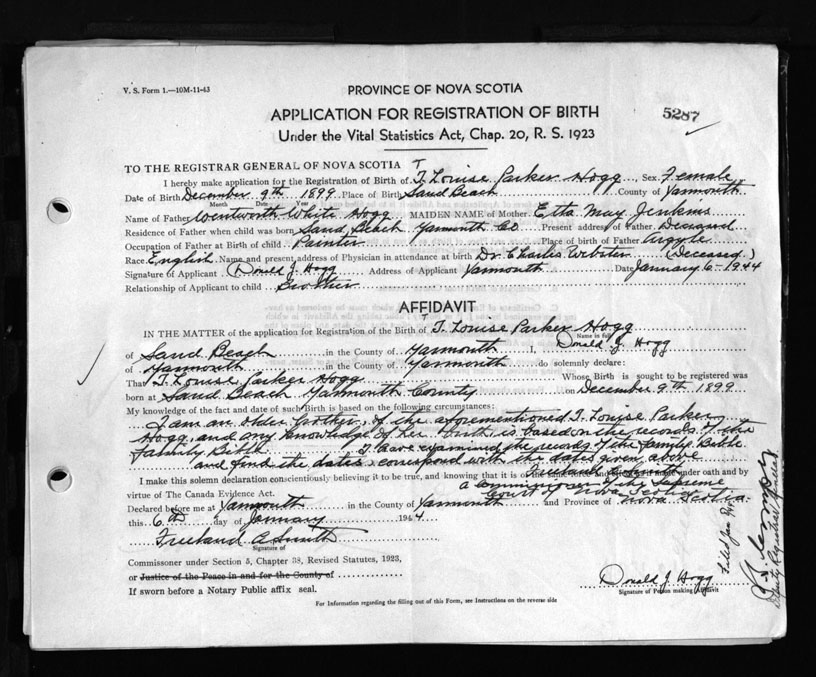 V. S. Form 1.—10M-11-43
PROVINCE OF NOVA SCOTIA
APPLICATION FOR REGISTRATION OF BIRTH
5287
Under the Vital Statistics Act, Chap. 20, R. S. 1923
TO THE REGISTRAR GENERAL OF NOVA SCOTIA
I hereby make application for the Registration of Birth of T. Louise Parker Hogg Sex Female
Date of Birth December 9th 1899 Place of Birth Sand Beach County of Yarmouth
Month Day Year
Name of Father Wentworth White Hogg MAIDEN NAME of Mother Etta May Jenkins
Residence of Father when child was born Sand Beach Yarmouth Co Present address of Father Deceased
Occupation of Father at Birth of child Painter Place of Birth of Father Argyle
Race English Name and present address of Physician in attendance at birth Dr Charles Webster (Deceased)
Signature of Applicant Donald J. Hogg Address of Applicant Yarmouth Date January 6 - 1944
Relationship of Applicant to child Brother
AFFIDAVIT
IN THE MATTER of the application for Registration of the Birth of T. Louise Parker Hogg
Name in full
of Sand Beach in the County of Yarmouth I, Donald J. Hogg
of Yarmouth in the County of Yarmouth do solemnly declare:
That T. Louise Parker Hogg Whose Birth is sought to be registered was
born at Sand Beach Yarmouth County on December 9th 1899
My knowledge of the fact and date of such Birth is based on the following circumstances:
I am an older brother of the aforementioned T. Louise Parker
Hogg, and any knowledge of her birth is based on the records of the
family Bible. I have examined the records of the family Bible
and find the dates correspond with the dates given above
I make this solemn declaration conscientiously believing it to be true, and knowing that it is of the made under oath and by
a Commissioner of the Supreme
virtue of The Canada Evidence Act.
Court of Nova Scotia
Declared before me at Yarmouth in the County of Yarmouth and Province of Nova Scotia
this 6th day of January 1944
Freeland A Smith
Signature of
Commissioner under Section 5, Chapter 38, Revised Statutes, 1923,
or Justice of the Peace in and for the County of
If sworn before a Notary Public affix seal.
Donald J. Hogg
Signature of Person making Affidavit
For Information regarding the filling out of this Form, see Instructions on the reverse side
Deputy Registrar General